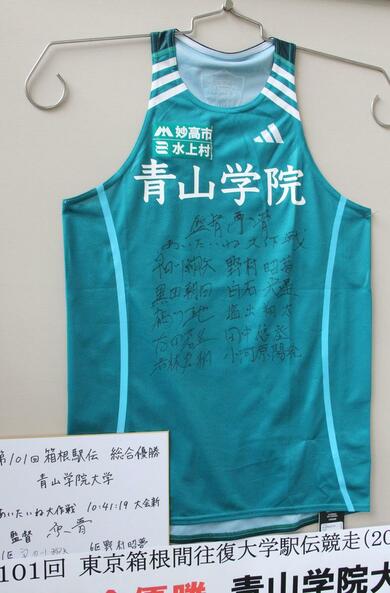 妙高市
水上村
青山学院
あいたいね大作戦
野村昭夢
黒田朝日 白石光星
塩出翔太
太田蒼生 田中悠登
若林宏樹 小河原陽琉
第101回箱根駅伝 総合優勝
青山学院大学
あいたいね大作戦 10:41:19 大会新
監督 原晋
6区 野村昭夢
101回 東京箱根間往復大学駅伝競走(20
青山学院大